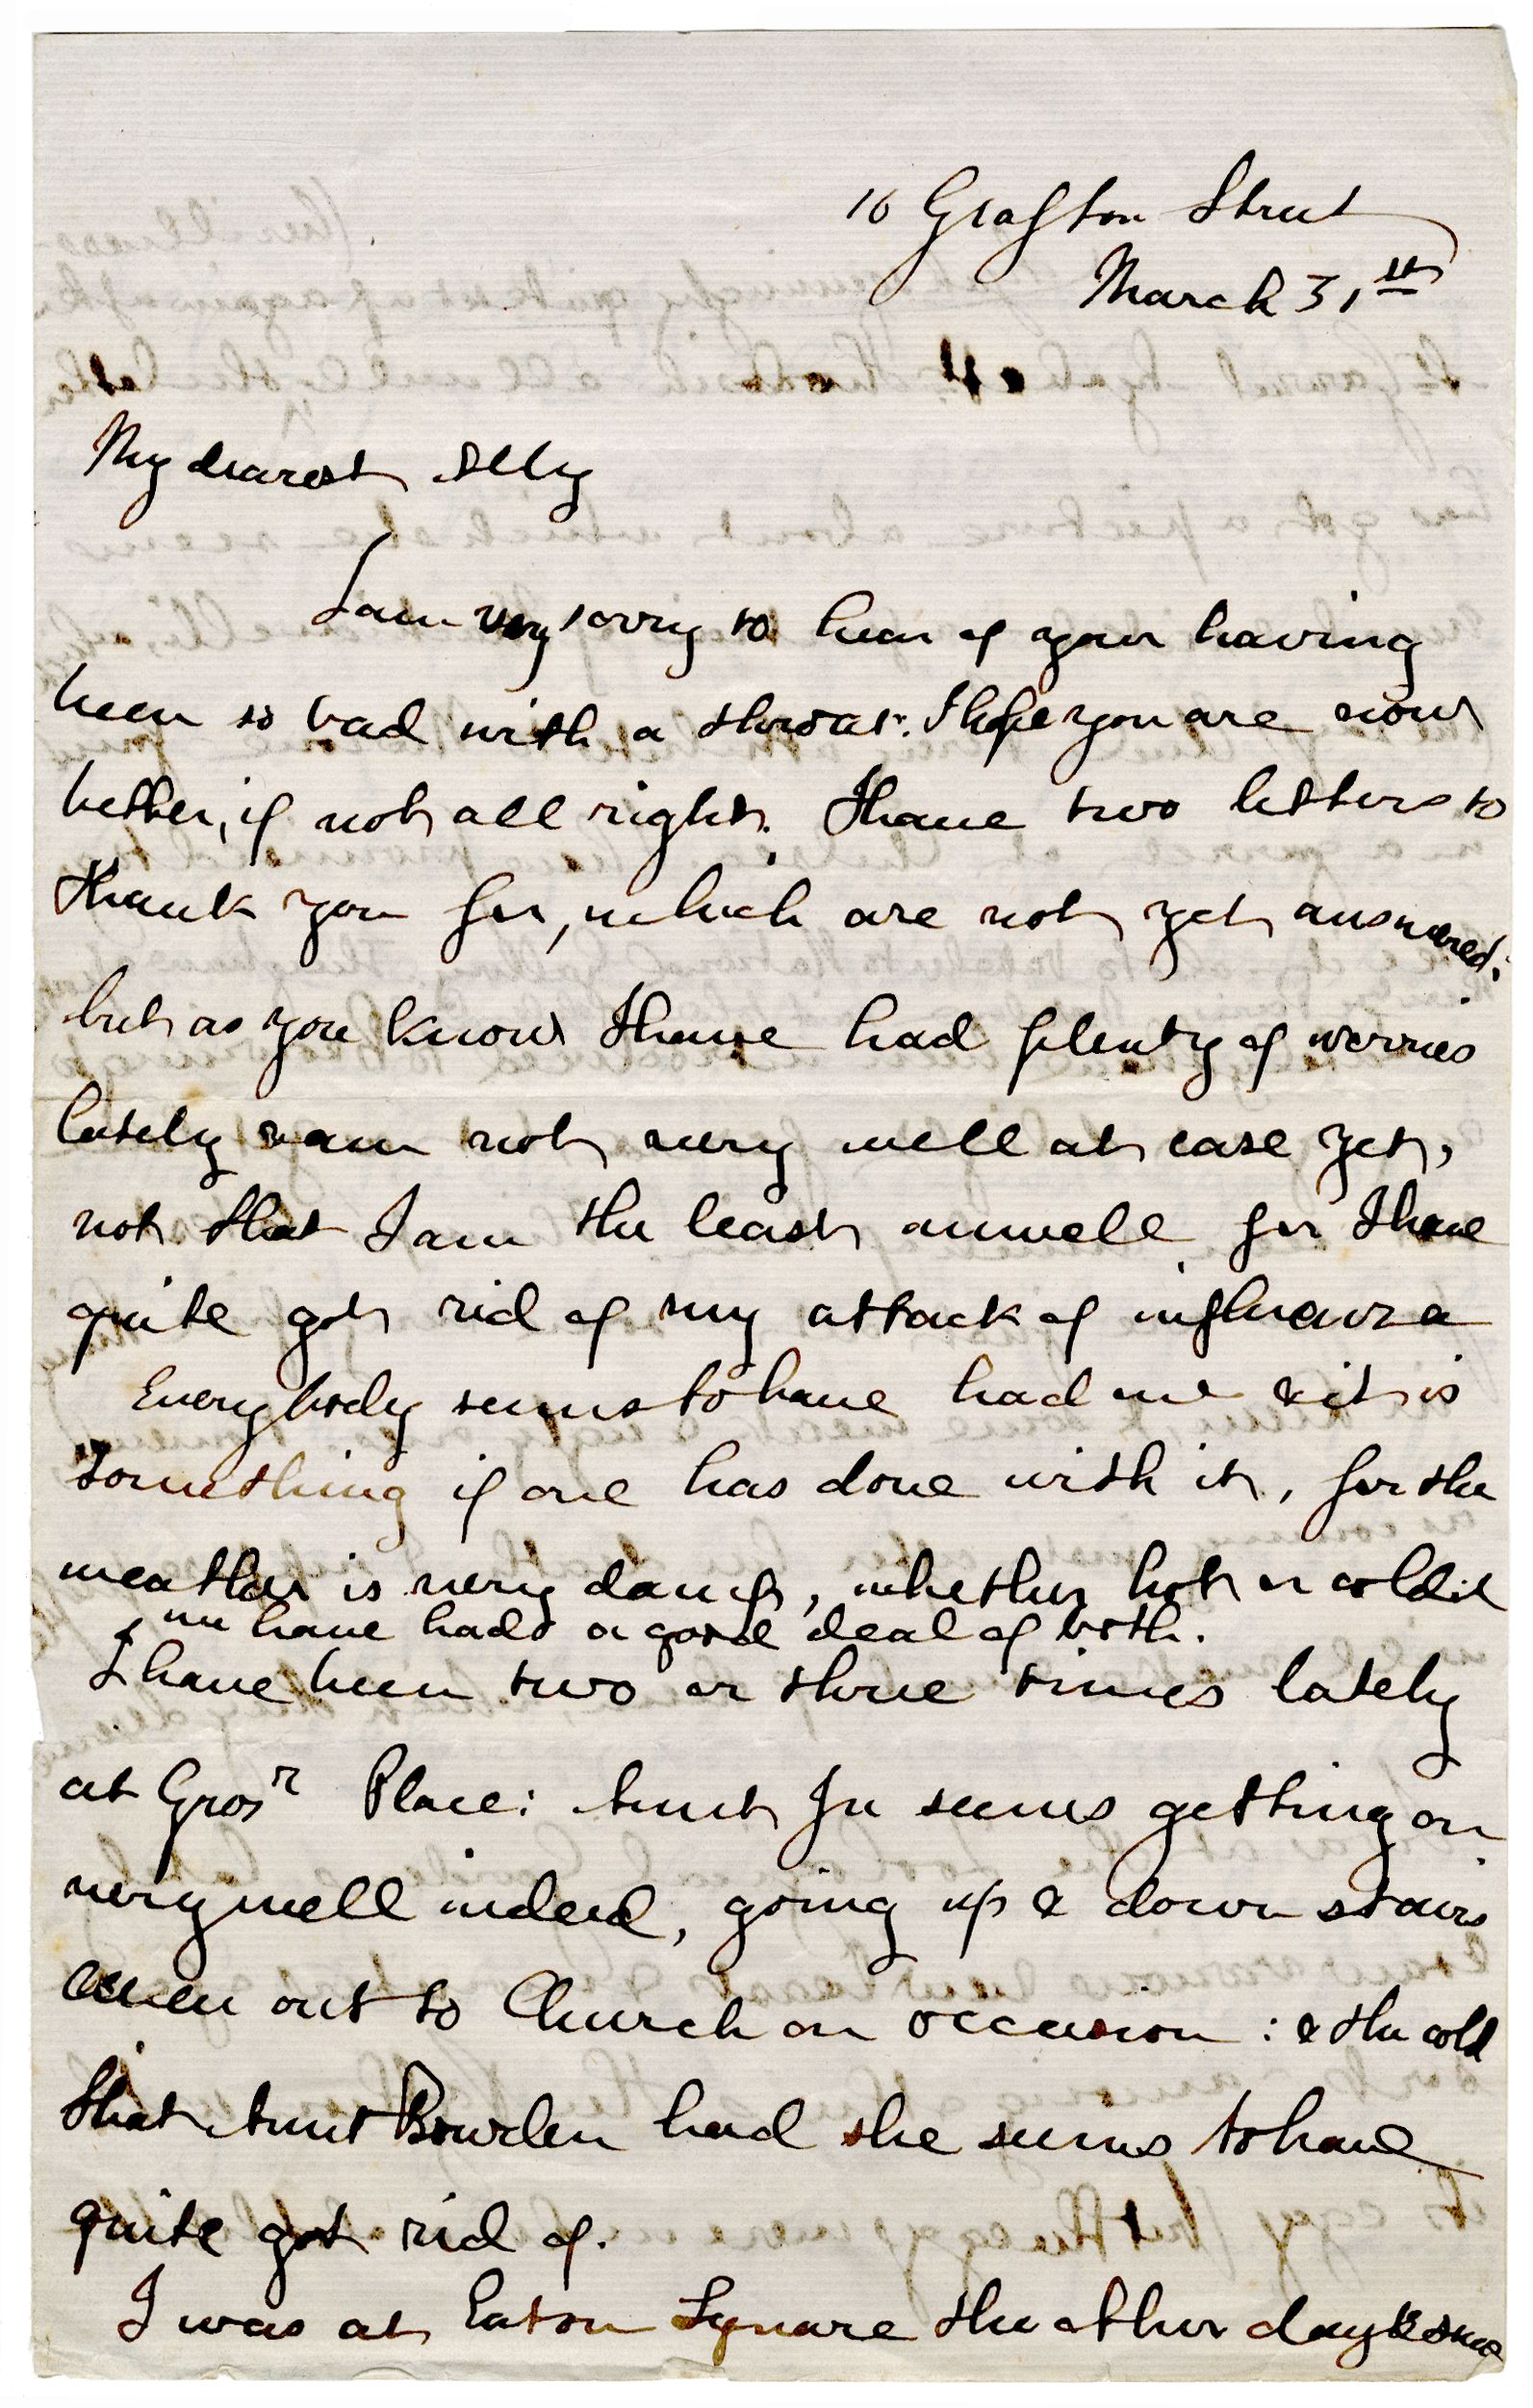 16 Grafton Street
March 31st
My dearest Elly
I am very sorry to hear of your having
been so bad with a throat. I hope you are now
better, if not all right. I have two letters to
thank you for, which are not yet answered:
but as you know I have had plenty of worries
lately & am not very well at ease yet,
not that I am the least unwell for I have
quite got rid of my attack of influenza
Everybody seems to have had one & it is
something if one has done with it, for the
weather is very damp, whether hot or cold &
we have had a good deal of both.
I have been two or three times lately
at Gros.r Place: Aunt Ju seems getting on
very well indeed, going up & down stairs
even out to Church on occasion: & the cold
that Aunt Bowden had she seems to have
quite got rid of.
I was at Eaton Square the other day &